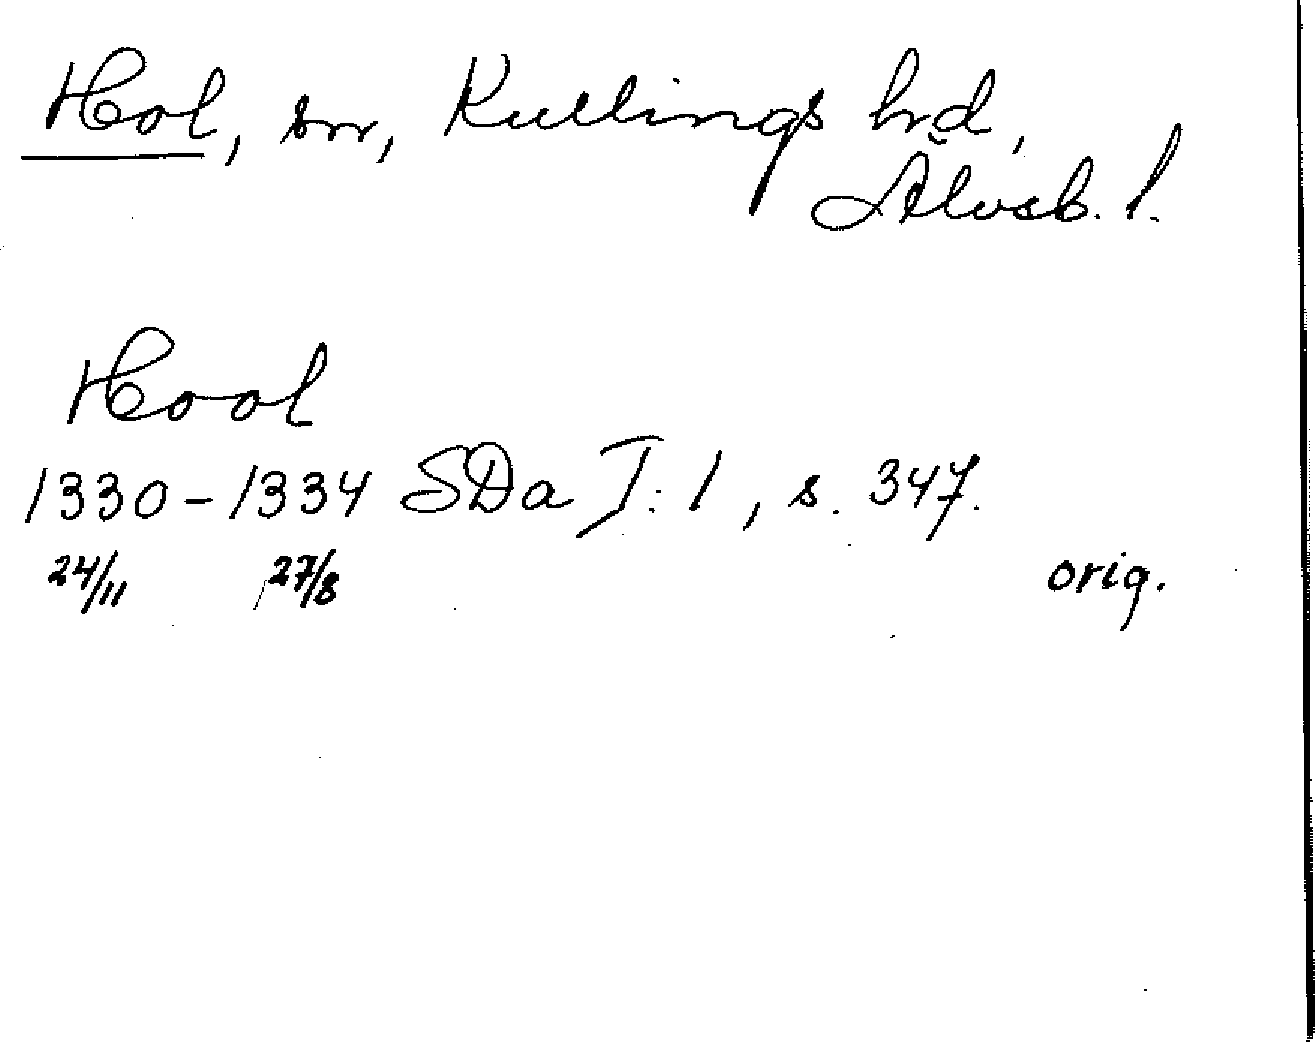 Hol, sn, Kullings hrd,
Älvsb. l.
Hool
1330-1334 SDa I:1, s. 347.
24/11 27/8 orig.